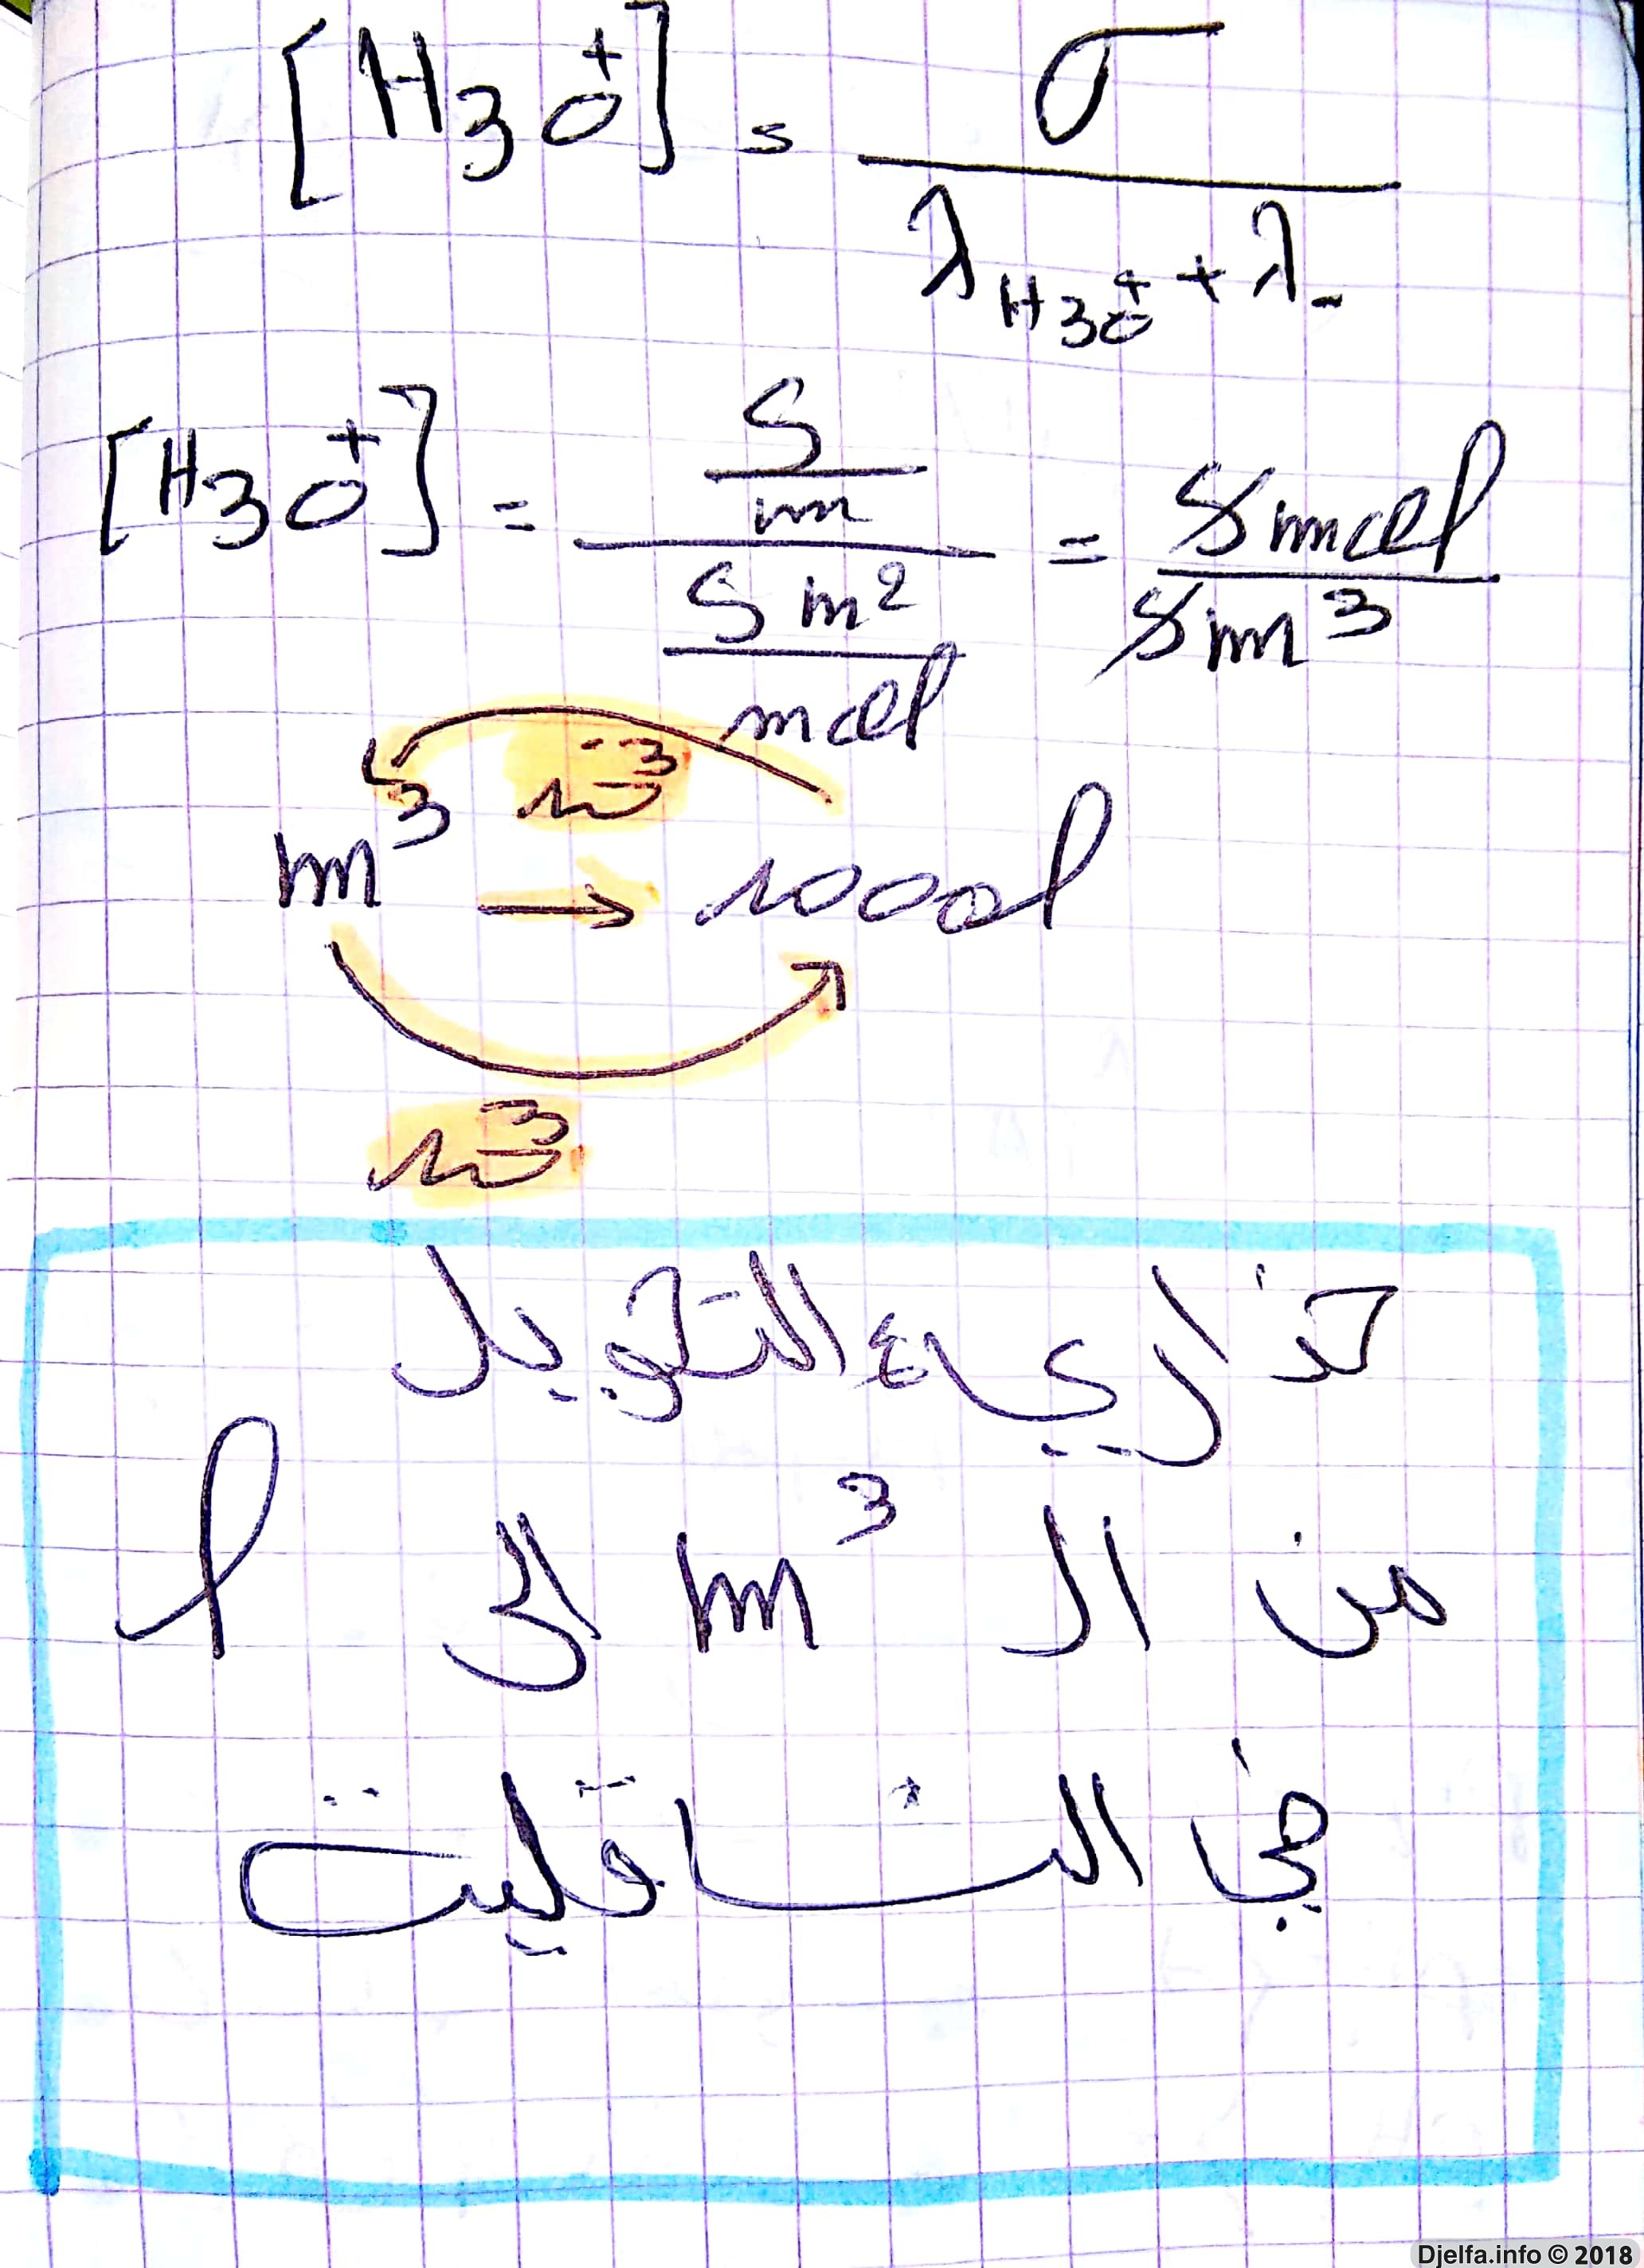 [H3O+] = σ / (λH3O+ + λ-)
[H3O+] = (S/m) / (S m²/mol) = S mol / S m³
10⁻³
m³ → 1000l
10³
حذاري التحويل
من ال m³ الى l
في الناقلية
Djelfa.info © 2018